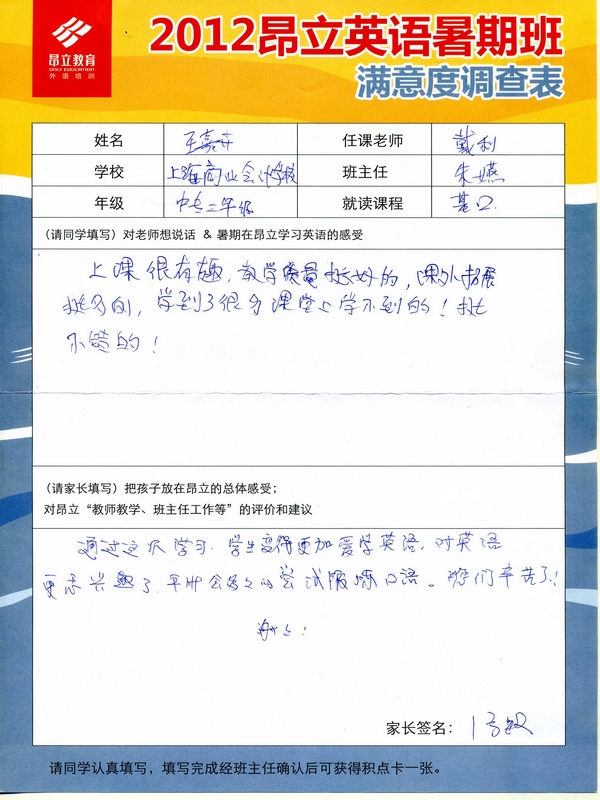 昂立教育
ONLY EDUCATION
外语培训
2012昂立英语暑期班
满意度调查表
姓名 王嘉卉 任课老师 戴利
学校 上海商业会计学校 班主任 朱嬿
年级 中专二年级 就读课程 基口
(请同学填写) 对老师想说话 & 暑期在昂立学习英语的感受
上课很有趣,教学质量挺好的,课外拓展
挺多的,学到了很多课堂上学不到的!挺
不错的!
(请家长填写) 把孩子放在昂立的总体感受;
对昂立“教师教学、班主任工作等”的评价和建议
通过这次学习,学生变得更加爱学英语,对英语
更感兴趣了,平时会多次的尝试锻炼口语。你们辛苦了!
谢谢!
家长签名:
请同学认真填写,填写完成经班主任确认后可获得积点卡一张。